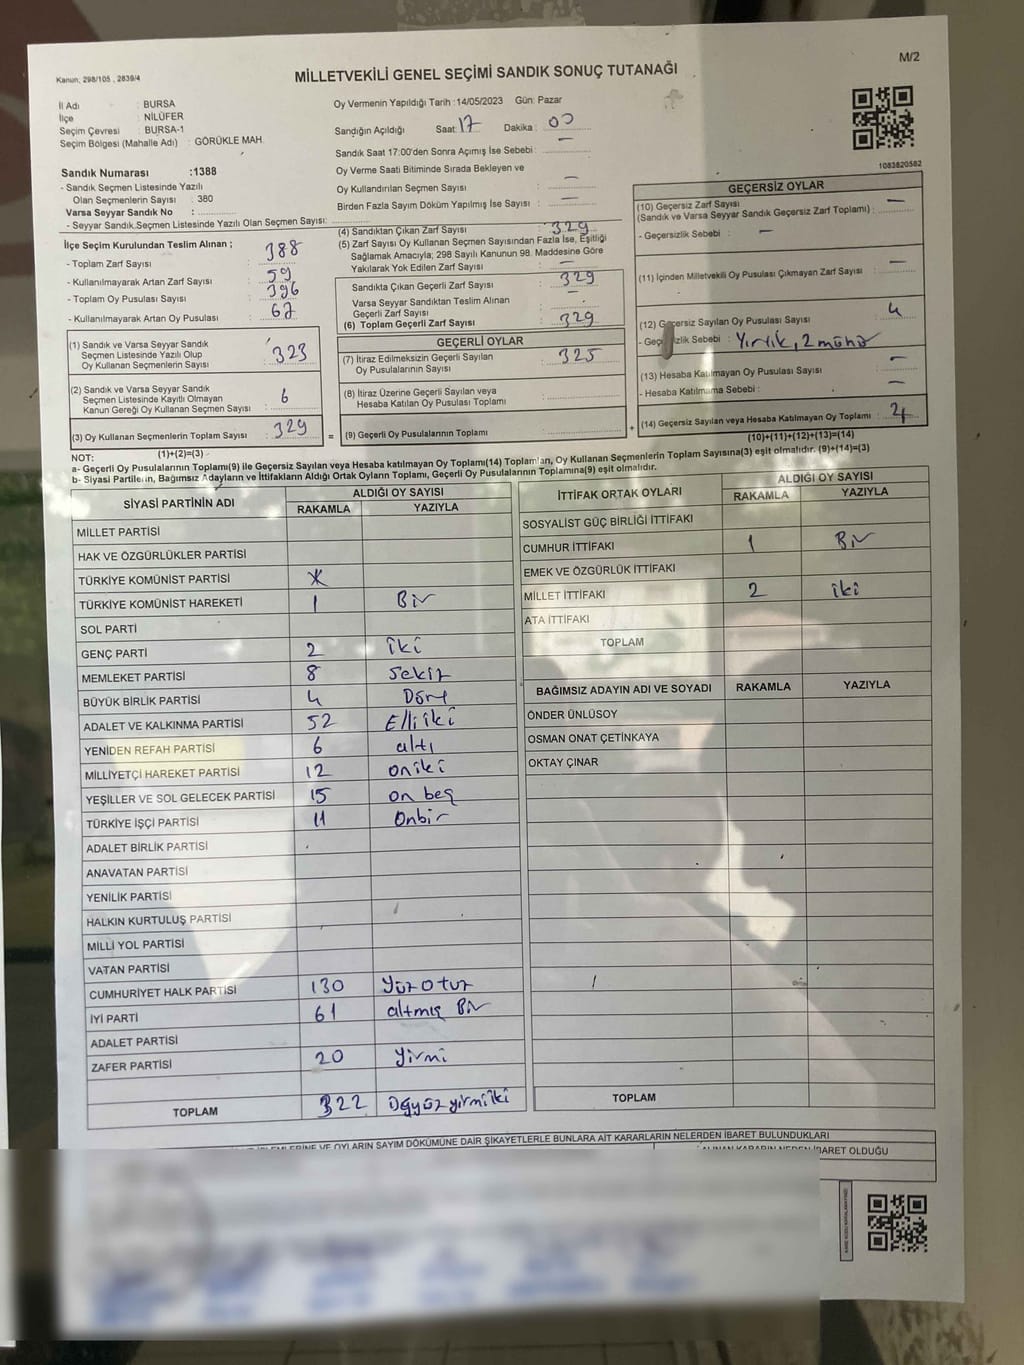 Kanun; 298/105 , 2839/4
M/2
MİLLETVEKİLİ GENEL SEÇİMİ SANDIK SONUÇ TUTANAĞI
İl Adı : BURSA
İlçe : NİLÜFER
Seçim Çevresi : BURSA-1
Seçim Bölgesi (Mahalle Adı) : GÖRÜKLE MAH.
Sandık Numarası :1388
- Sandık Seçmen Listesinde Yazılı
Olan Seçmenlerin Sayısı : 380
Varsa Seyyar Sandık No :
- Seyyar Sandık Seçmen Listesinde Yazılı Olan Seçmen Sayısı:
Oy Vermenin Yapıldığı Tarih :14/05/2023 Gün: Pazar
Sandığın Açıldığı Saat: 17 Dakika : 00
Sandık Saat 17:00'den Sonra Açımış İse Sebebi : —
Oy Verme Saati Bitiminde Sırada Bekleyen ve
Oy Kullandırılan Seçmen Sayısı : —
Birden Fazla Sayım Döküm Yapılmış İse Sayısı : —
1083820582
İlçe Seçim Kurulundan Teslim Alınan ;
- Toplam Zarf Sayısı : 388
- Kullanılmayarak Artan Zarf Sayısı : 59
- Toplam Oy Pusulası Sayısı : 396
- Kullanılmayarak Artan Oy Pusulası : 67
(1) Sandık ve Varsa Seyyar Sandık
Seçmen Listesinde Yazılı Olup
Oy Kullanan Seçmenlerin Sayısı : 323
(2) Sandık ve Varsa Seyyar Sandık
Seçmen Listesinde Kayıtlı Olmayan
Kanun Gereği Oy Kullanan Seçmen Sayısı : 6
(3) Oy Kullanan Seçmenlerin Toplam Sayısı : 329
(1)+(2)=(3)
(4) Sandıktan Çıkan Zarf Sayısı : 329
(5) Zarf Sayısı Oy Kullanan Seçmen Sayısından Fazla İse, Eşitliği
Sağlamak Amacıyla; 298 Sayılı Kanunun 98. Maddesine Göre
Yakılarak Yok Edilen Zarf Sayısı : —
Sandıkta Çıkan Geçerli Zarf Sayısı : 329
Varsa Seyyar Sandıktan Teslim Alınan
Geçerli Zarf Sayısı : —
(6) Toplam Geçerli Zarf Sayısı : 329
GEÇERLİ OYLAR
(7) İtiraz Edilmeksizin Geçerli Sayılan
Oy Pusulalarının Sayısı : 325
(8) İtiraz Üzerine Geçerli Sayılan veya
Hesaba Katılan Oy Pusulası Toplamı :
= (9) Geçerli Oy Pusulalarının Toplamı : +
GEÇERSİZ OYLAR
(10) Geçersiz Zarf Sayısı
(Sandık ve Varsa Seyyar Sandık Geçersiz Zarf Toplamı) : —
- Geçersizlik Sebebi : —
(11) İçinden Milletvekili Oy Pusulası Çıkmayan Zarf Sayısı : —
(12) Geçersiz Sayılan Oy Pusulası Sayısı : 4
Sebebi : Yırtık, 2 mühür
(13) Hesaba Katılmayan Oy Pusulası Sayısı : —
- Hesaba Katılmama Sebebi : —
(14) Geçersiz Sayılan veya Hesaba Katılmayan Oy Toplamı : 4
(10)+(11)+(12)+(13)=(14)
NOT:
a- Geçerli Oy Pusulalarının Toplamı(9) ile Geçersiz Sayılan veya Hesaba katılmayan Oy Toplamı(14) Toplamları, Oy Kullanan Seçmenlerin Toplam Sayısına(3) eşit olmalıdır. (9)+(14)=(3)
b- Siyasi Partilerin, Bağımsız Adayların ve İttifakların Aldığı Ortak Oyların Toplamı, Geçerli Oy Pusulalarının Toplamına(9) eşit olmalıdır.
SİYASİ PARTİNİN ADI ALDIĞI OY SAYISI
RAKAMLA YAZIYLA
MİLLET PARTİSİ
HAK VE ÖZGÜRLÜKLER PARTİSİ
TÜRKİYE KOMÜNİST PARTİSİ
TÜRKİYE KOMÜNİST HAREKETİ 1 Bir
SOL PARTİ
GENÇ PARTİ 2 iki
MEMLEKET PARTİSİ 8 Sekiz
BÜYÜK BİRLİK PARTİSİ 4 Dört
ADALET VE KALKINMA PARTİSİ 52 Elliiki
YENİDEN REFAH PARTİSİ 6 altı
MİLLİYETÇİ HAREKET PARTİSİ 12 oniki
YEŞİLLER VE SOL GELECEK PARTİSİ 15 on beş
TÜRKİYE İŞÇİ PARTİSİ 11 Onbir
ADALET BİRLİK PARTİSİ
ANAVATAN PARTİSİ
YENİLİK PARTİSİ
HALKIN KURTULUŞ PARTİSİ
MİLLİ YOL PARTİSİ
VATAN PARTİSİ
CUMHURİYET HALK PARTİSİ 130 Yüz Otuz
İYİ PARTİ 61 altmış Bir
ADALET PARTİSİ
ZAFER PARTİSİ 20 Yirmi
TOPLAM 322 Üçyüzyirmiiki
İTTİFAK ORTAK OYLARI ALDIĞI OY SAYISI
RAKAMLA YAZIYLA
SOSYALİST GÜÇ BİRLİĞİ İTTİFAKI
CUMHUR İTTİFAKI 1 Bir
EMEK VE ÖZGÜRLÜK İTTİFAKI
MİLLET İTTİFAKI 2 iki
ATA İTTİFAKI
TOPLAM
BAĞIMSIZ ADAYIN ADI VE SOYADI RAKAMLA YAZIYLA
ÖNDER ÜNLÜSOY
OSMAN ONAT ÇETİNKAYA
OKTAY ÇINAR
TOPLAM
VE OYLARIN SAYIM DÖKÜMÜNE DAİR ŞİKAYETLERLE BUNLARA AİT KARARLARIN NELERDEN İBARET BULUNDUKLARI
İBARET OLDUĞU